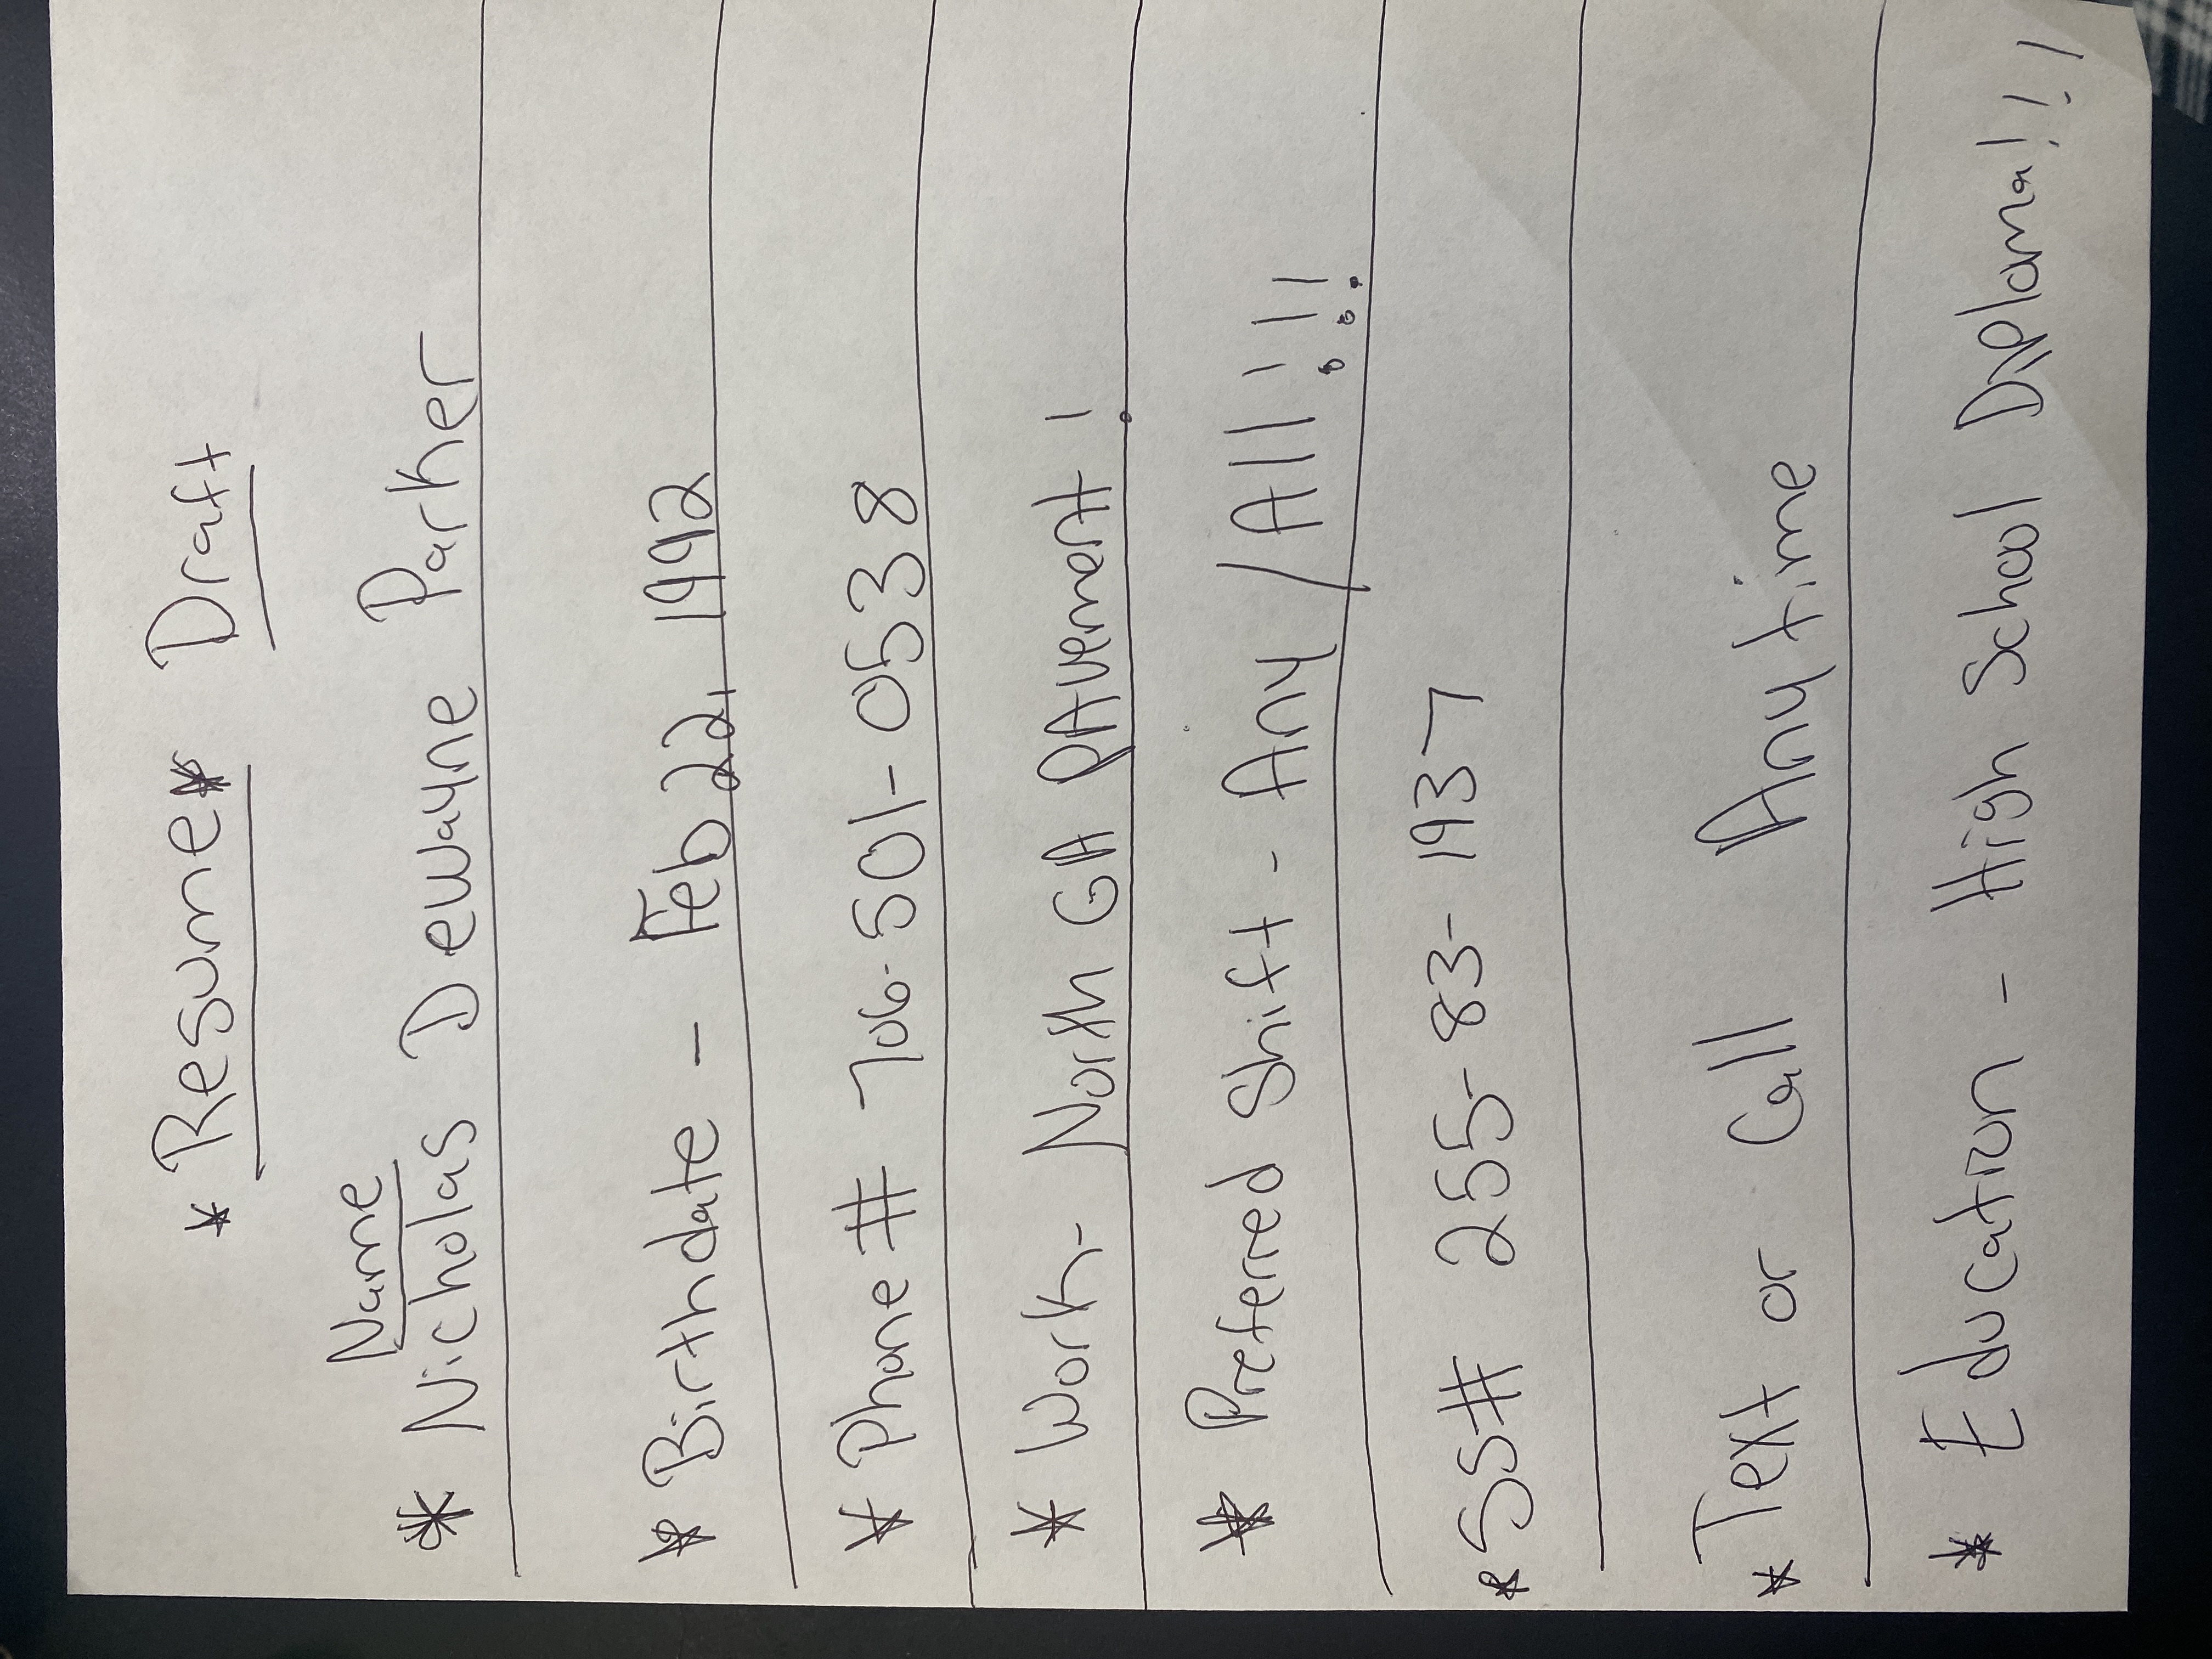 * Resume* Draft
Name
* Nicholas Dewayne Parker
* Birthdate - Feb 22, 1992
* Phone # 706-501-0538
* Work- North GA PAvement!
* Preferred Shift - Any / All!!!
* SS# 255-83-1937
* Text or Call Anytime
* Education - High School Diploma!!!